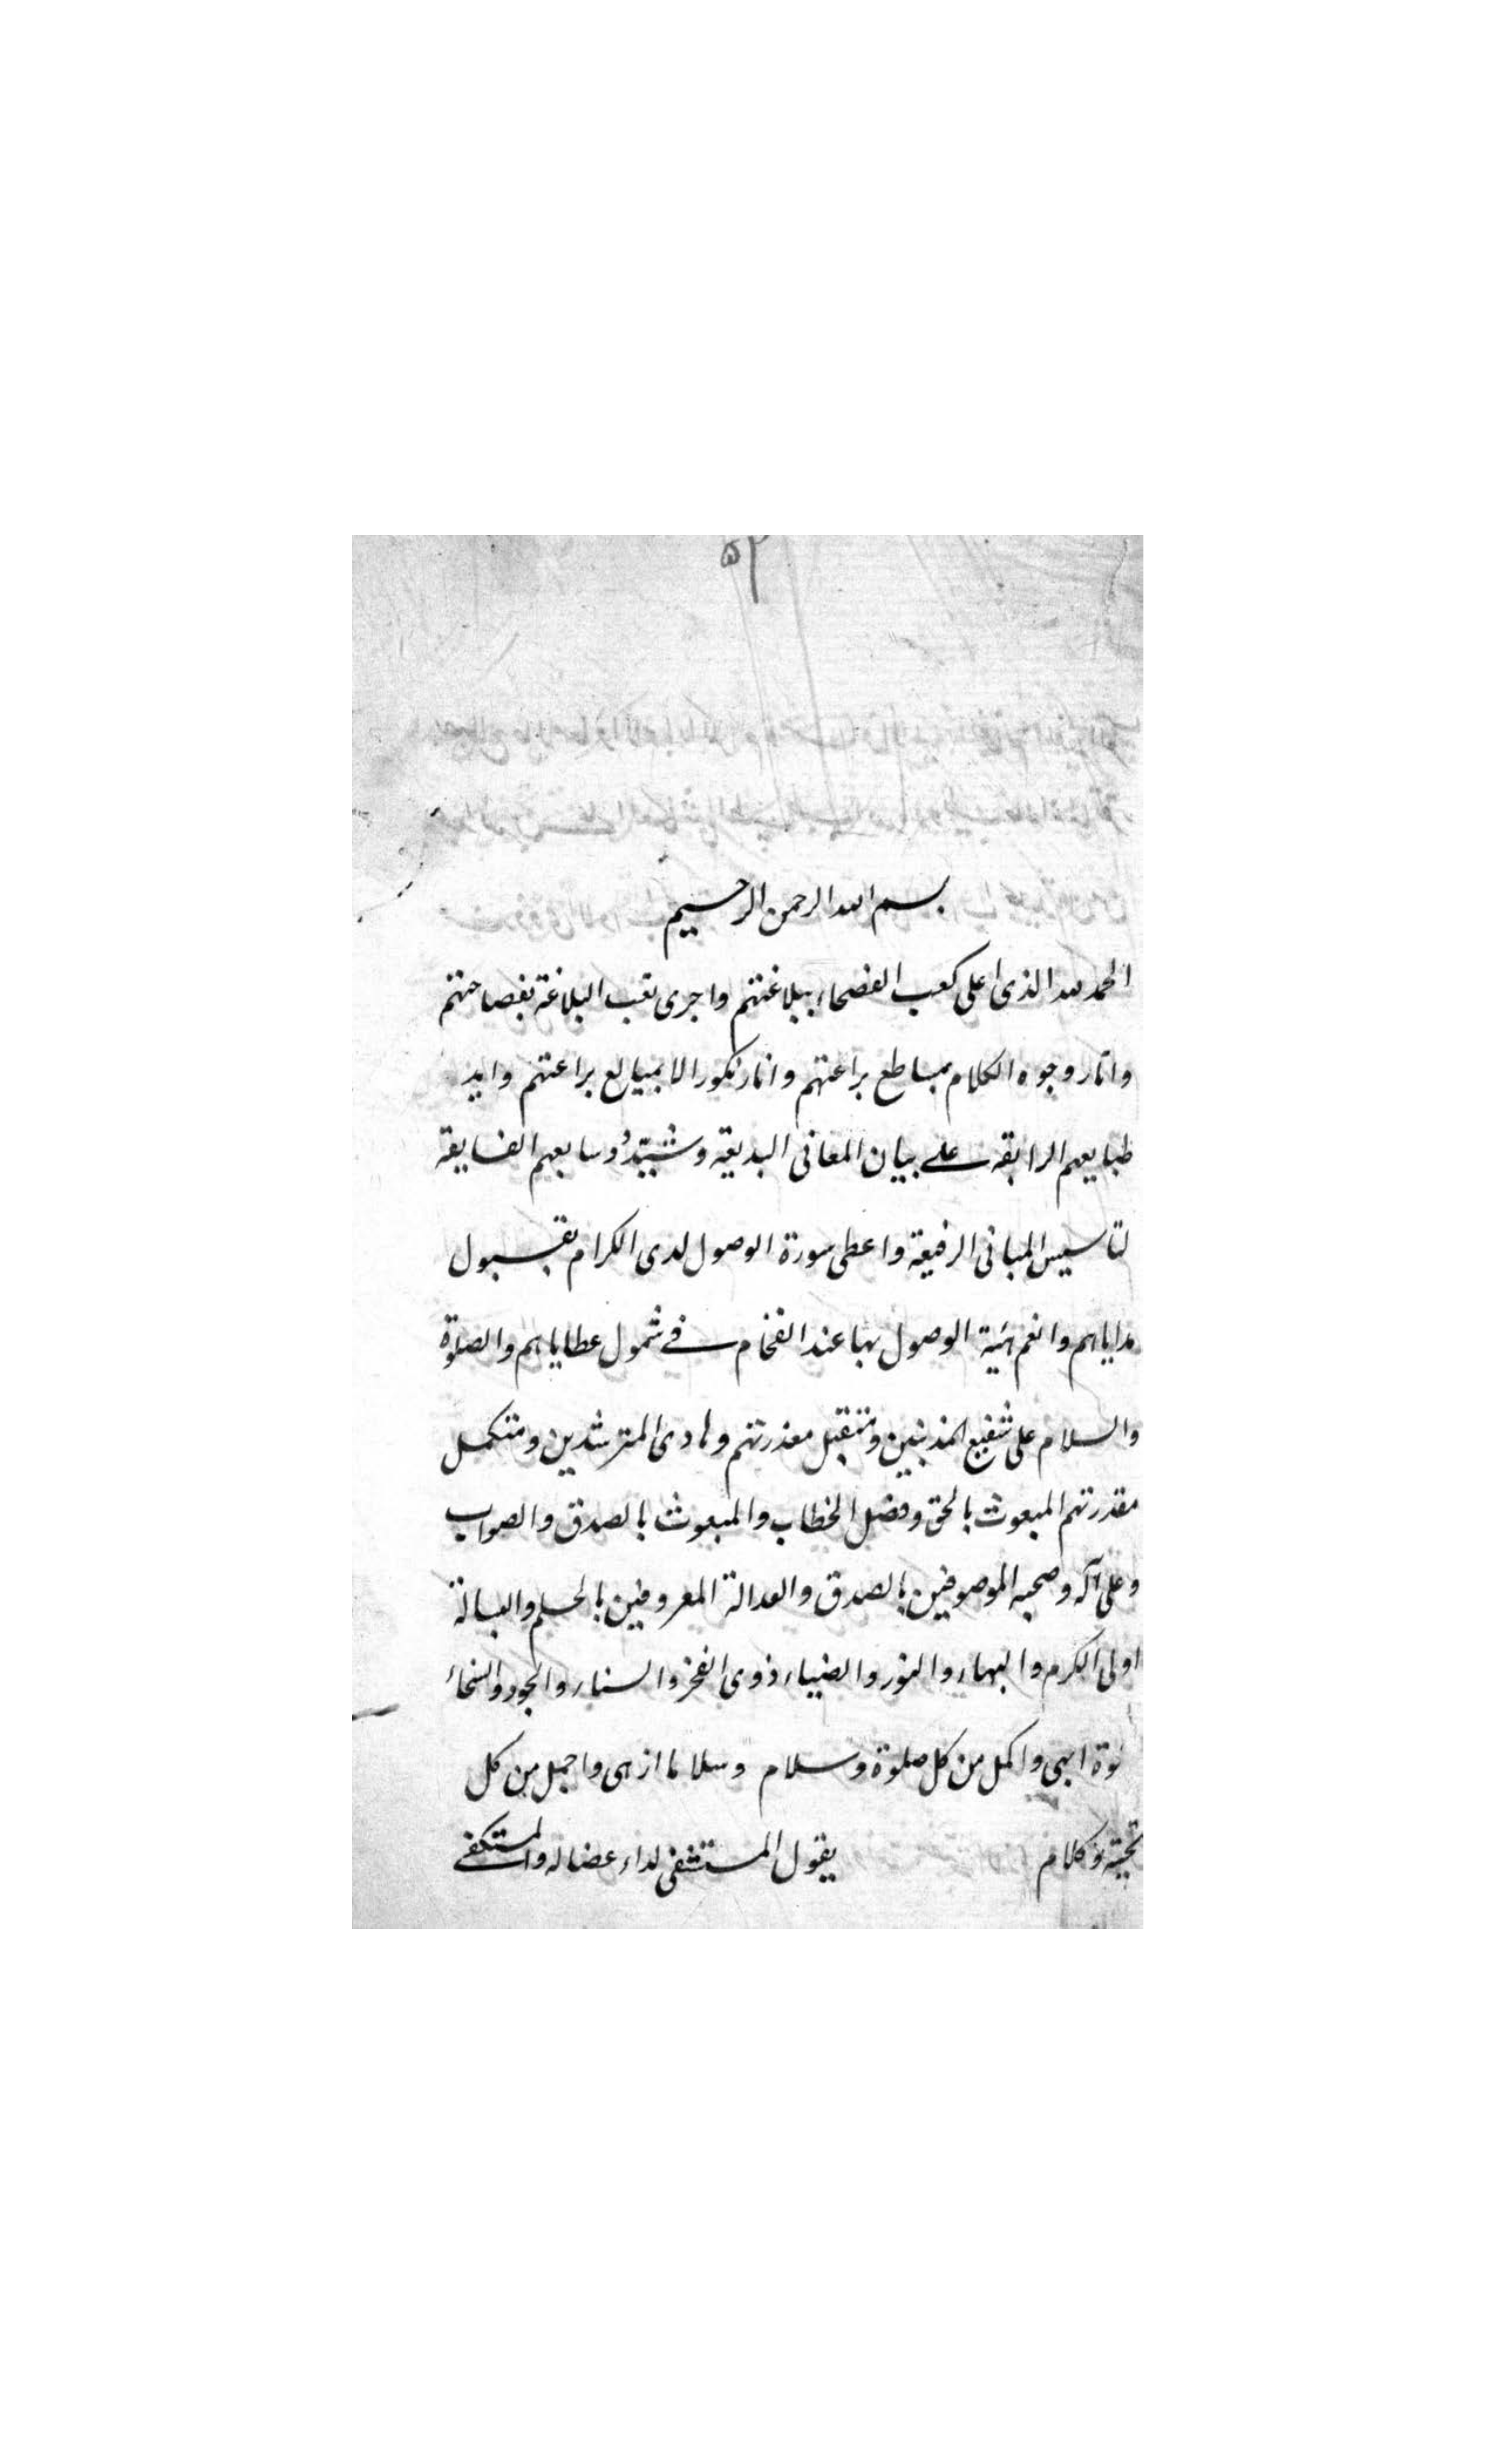 ٥٢
بسم الله الرحمن الرحيم
الحمد لله الذى اعلى كعب الفصحاء ببلاغتهم واجرى تعب البلاغة بفصاحتهم
وانار وجوه الكلام بساطع براعتهم وانار براعتهم وايد
طبايعهم الرايقة على بيان المعانى البديعة وشيد وسايعهم الفايقة
لتاسيس المبانى الرفيعة واعطى سورة الوصول لدى الكرام بقبول
هداياهم وانعم هئية الوصول بها عند الفخام فى شمول عطاياهم والصلوة
والسلام على شفيع المذنبين ومتقبل معذرتهم وهادى المترشدين ومتكمل
مقدرتهم المبعوث بالحق وفصل الخطاب والمبعوث بالصدق والصواب
وعلى آله وصحبه الموصوفين بالصدق والعدالة المعروفين بالحلم والبسالة
اولى الكرم والبهاء والنور والضياء ذوى الفخر والسناء والجود والسخاء
ابهى واكمل من كل صلوة وسلام وسلاما ازهى واجمل من كل
تحية وكلام يقول المستشفى لداء عضاله والمستكفى